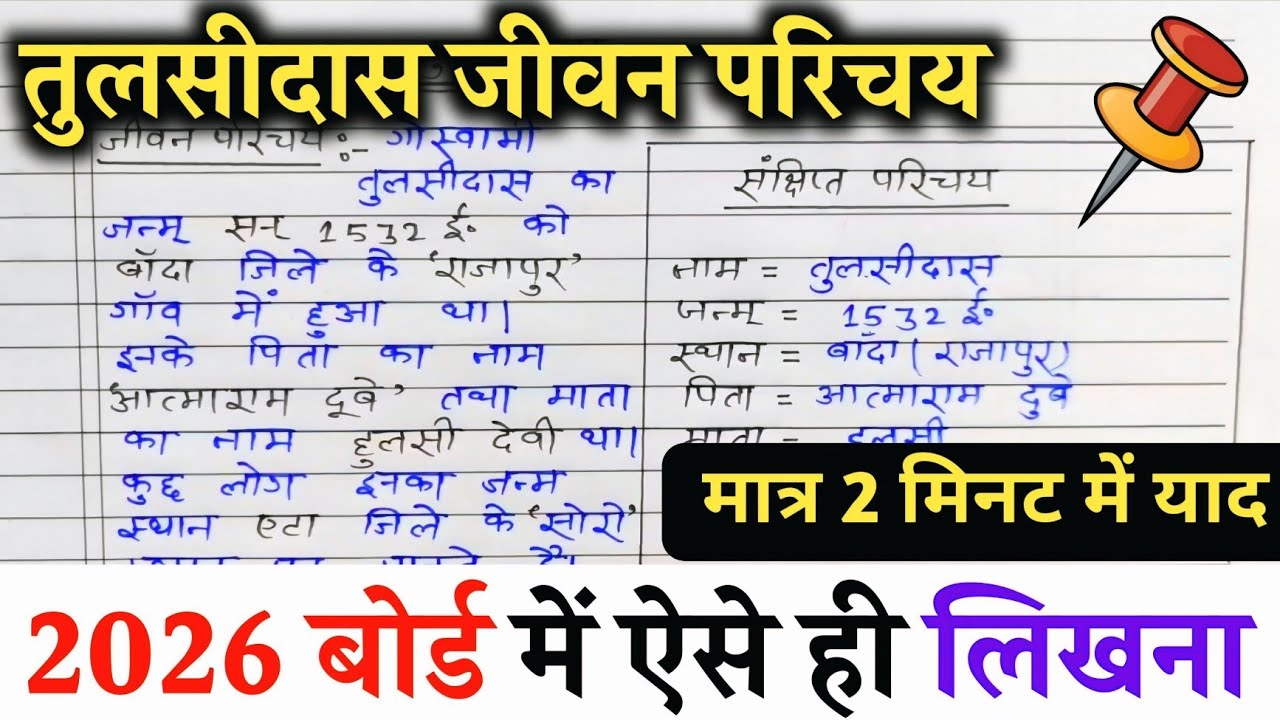 तुलसीदास जीवन परिचय
जीवन परिचय :- गोस्वामी
तुलसीदास का
जन्म सन् 1532 ई० को
बाँदा जिले के 'राजापुर'
गाँव में हुआ था।
इनके पिता का नाम
'आत्माराम दूबे' तथा माता
का नाम हुलसी देवी था।
कुछ लोग इनका जन्म
स्थान एटा जिले के 'सोरो'
संक्षिप्त परिचय
नाम = तुलसीदास
जन्म = 1532 ई०
स्थान = बाँदा (राजापुर)
पिता = आत्माराम दुबे
माता = हुलसी
मात्र 2 मिनट में याद
2026 बोर्ड में ऐसे ही लिखना